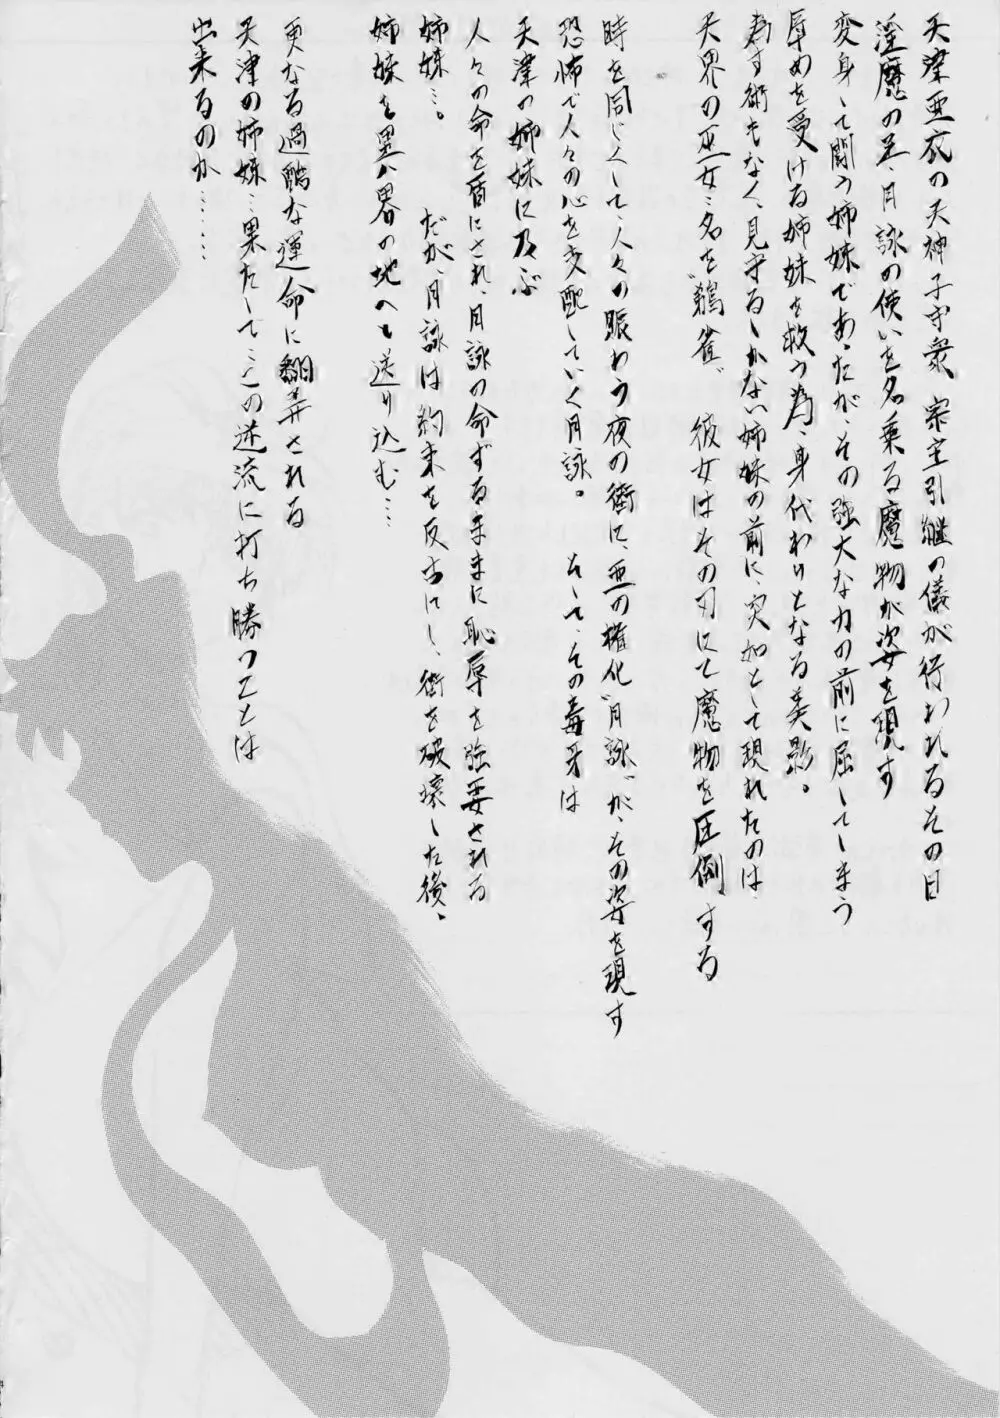 天津亜衣の天神子守衆 宗主引継の儀が行われるその日
淫魔の王、月詠の使いを名乗る魔物が姿を現す
変身して闘う姉妹であったが、その強大な力の前に屈してしまう
辱めを受ける姉妹を救う為、身代わりとなる美影。
為す術もなく、見守るしかない姉妹の前に、突如として現れたのは
天界の巫女…名を“鵺雀” 彼女はその刃にて魔物を圧倒する
時を同じくして、人々の賑わう夜の街に、悪の権化“月詠”が、その姿を現す
恐怖で人々の心を支配していく月詠。 そして、その毒牙は
天津の姉妹に及ぶ
人々の命を盾にされ、月詠の命ずるままに恥辱を強要される
姉妹…。 だが、月詠は約束を反古にし、街を破壊した後、
姉妹を異八界の地へと送り込む…
更なる過酷な運命に翻弄される
天津の姉妹…果たして…この逆流に打ち勝つことは
出来るのか……